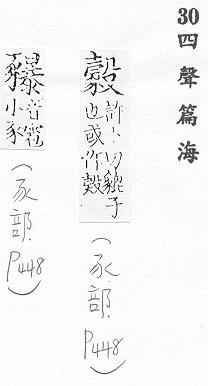 30四聲篇海
豰 許卜切貔子
也或作
(豕部 P448)
音雹
小豕
(豕部 P448)